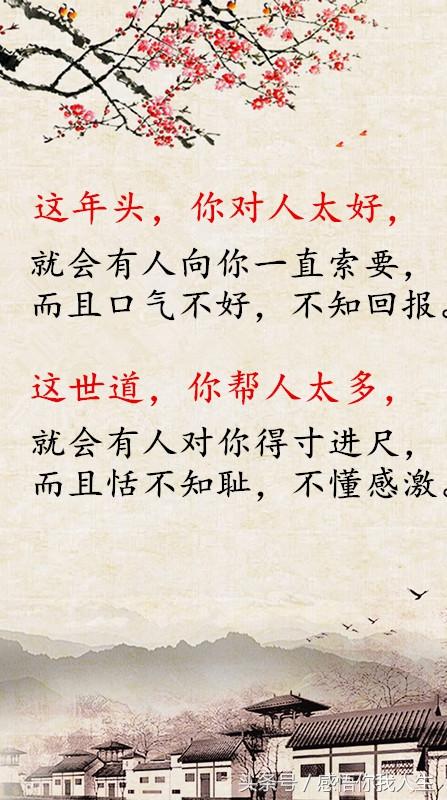 这年头，你对人太好，
就会有人向你一直索要，
而且口气不好，不知回报。
这世道，你帮人太多，
就会有人对你得寸进尺，
而且恬不知耻，不懂感激。
头条号/感悟你我人生